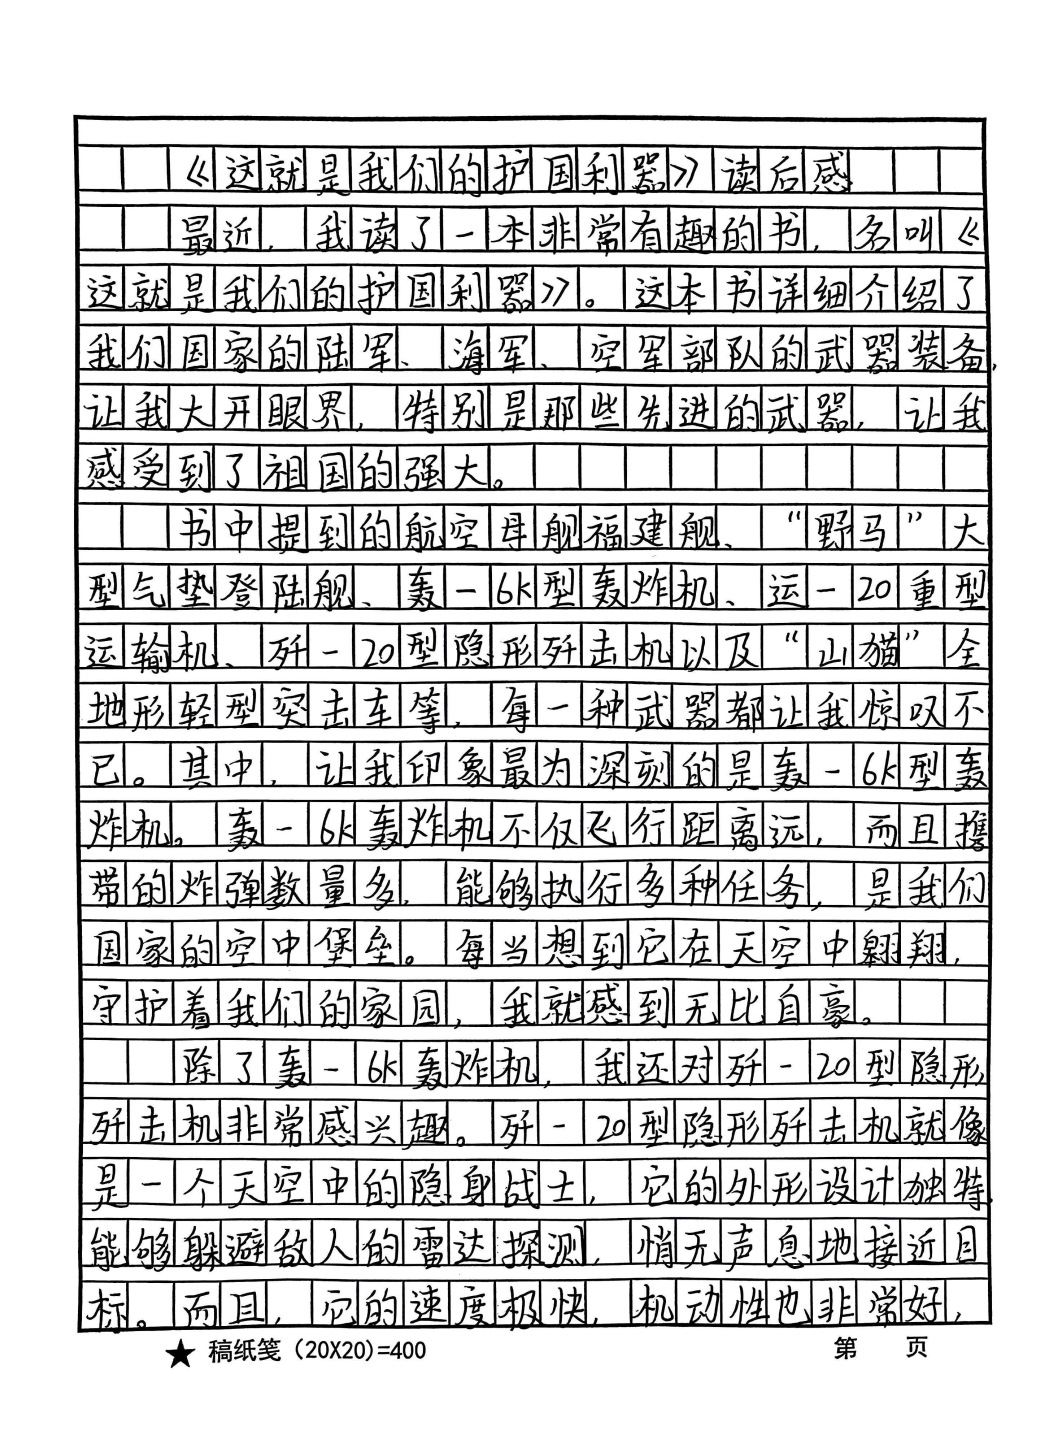 《这就是我们的护国利器》读后感
最近，我读了一本非常有趣的书，名叫《
这就是我们的护国利器》。这本书详细介绍了
我们国家的陆军、海军、空军部队的武器装备，
让我大开眼界，特别是那些先进的武器，让我
感受到了祖国的强大。
书中提到的航空母舰福建舰、“野马”大
型气垫登陆舰、轰-6K型轰炸机、运-20重型
运输机、歼-20型隐形歼击机以及“山猫”全
地形轻型突击车等，每一种武器都让我惊叹不
已。其中，让我印象最为深刻的是轰-6K型轰
炸机。轰-6K轰炸机不仅飞行距离远，而且携
带的炸弹数量多，能够执行多种任务，是我们
国家的空中堡垒。每当想到它在天空中翱翔，
守护着我们的家园，我就感到无比自豪。
除了轰-6K轰炸机，我还对歼-20型隐形
歼击机非常感兴趣。歼-20型隐形歼击机就像
是一个天空中的隐身战士，它的外形设计独特，
能够躲避敌人的雷达探测，悄无声息地接近目
标。而且，它的速度极快，机动性也非常好，
★ 稿纸笺（20X20)=400 第 页